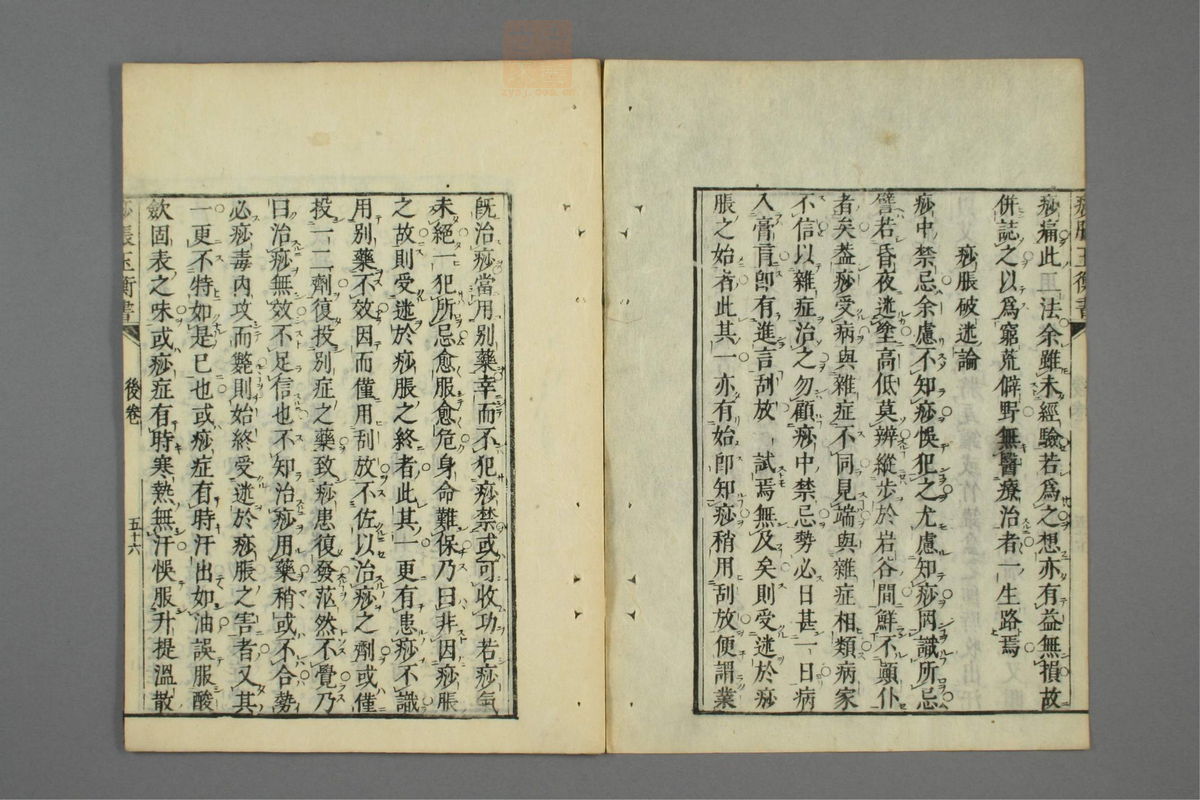 痧脹玉衡書
痧痛此二法余雖未經驗若爲之想亦有益無損故
併誌之以爲窮荒僻野無醫療治者一生路焉
痧脹破迷論
痧中禁忌余慮不知痧悞犯之尤慮知痧罔識所忌
譬若昏夜迷塗高低莫辨縱步於岩谷間鮮不顚仆
者矣葢痧受病與雜症不同見端與雜症相類病家
不信以雜症治之勿顧痧中禁忌勢必日甚一日病
入膏肓卽有進言刮放一試焉無及矣則受迷於痧
脹之始者此其一亦有始卽知痧稍用刮放便謂業
旣治痧當用别藥幸而不犯痧禁或可收功若痧氣
未絕一犯所忌愈服愈危身命難保乃曰非因痧脹
之故則受迷於痧脹之終者此其一更有患痧不識
用别藥不效因而僅用刮放不佐以治痧之劑或僅
投一二劑復投别症之藥致痧患復發茫然不覺乃
曰治痧無效不足信也不知治痧用藥稍或不合勢
必痧毒內攻而斃則始終受迷於痧脹之害者又其
一更不特如是巳也或痧症有時汗出如油誤服酸
斂固表之味或痧症有時寒熱無汗悞服升提溫散
痧脹玉衡書 後卷 五十六